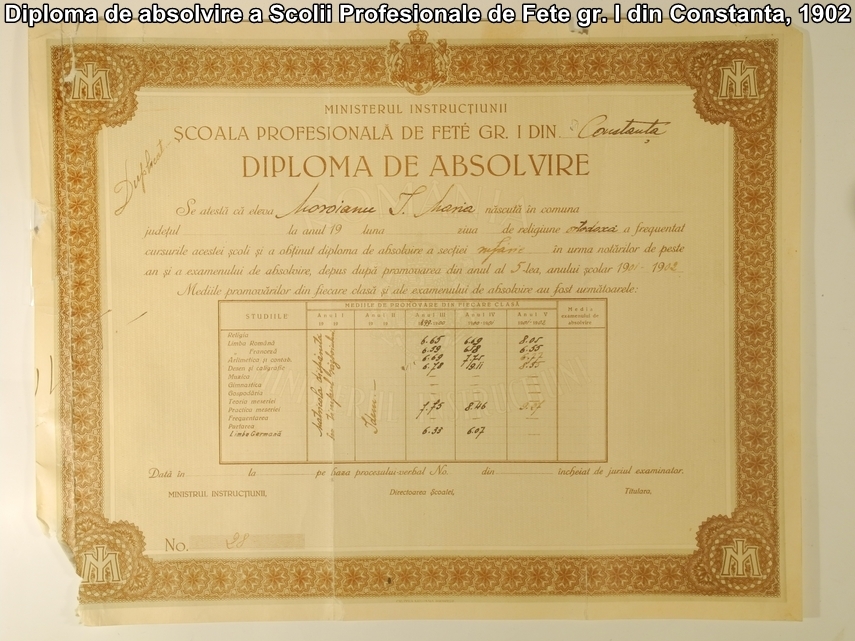 Diploma de absolvire a Scolii Profesionale de Fete gr. I din Constanta, 1902
MINISTERUL INSTRUCȚIUNII
ȘCOALA PROFESIONALĂ DE FETE GR. I DIN Constanța
DIPLOMA DE ABSOLVIRE
Duplicat
Se atestă că eleva Moroianu T. Maria născută în comuna
județul la anul 19 luna ziua de religiune ortodoxă a frequentat
cursurile acestei școli și a obținut diploma de absolvire a secției în urma notărilor de peste
an și a examenului de absolvire, depus după promovarea din anul al 5-lea, anului școlar 1901-1902
Mediile promovărilor din fiecare clasă și ale examenului de absolvire au fost următoarele:
STUDIILE MEDIILE DE PROMOVARE DIN FIECARE CLASĂ Media examenului de absolvire
Anul I Anul II Anul III Anul IV Anul V
19 19 19 19 1899-1900 1900-1901 1901-1902
Religia
Limba Română 6.65 6.69 8.05
„ Franceză 6.59 6.55
Aritmetica și contab. 6.69 7.75
Desen și caligrafie 6.70 8.55
Muzica — — —
Gimnastica — — —
Gospodăria — — —
Teoria meseriei
Practica meseriei 7.75 8.46
Frequentarea
Purtarea
Limba Germană 6.33 6.07 —
Matricola
în timpul
Idem
Dată în la pe baza procesului-verbal No. din încheiat de juriul examinator.
MINISTRUL INSTRUCȚIUNII, Directoarea Școalei, Titulara,
No. 28